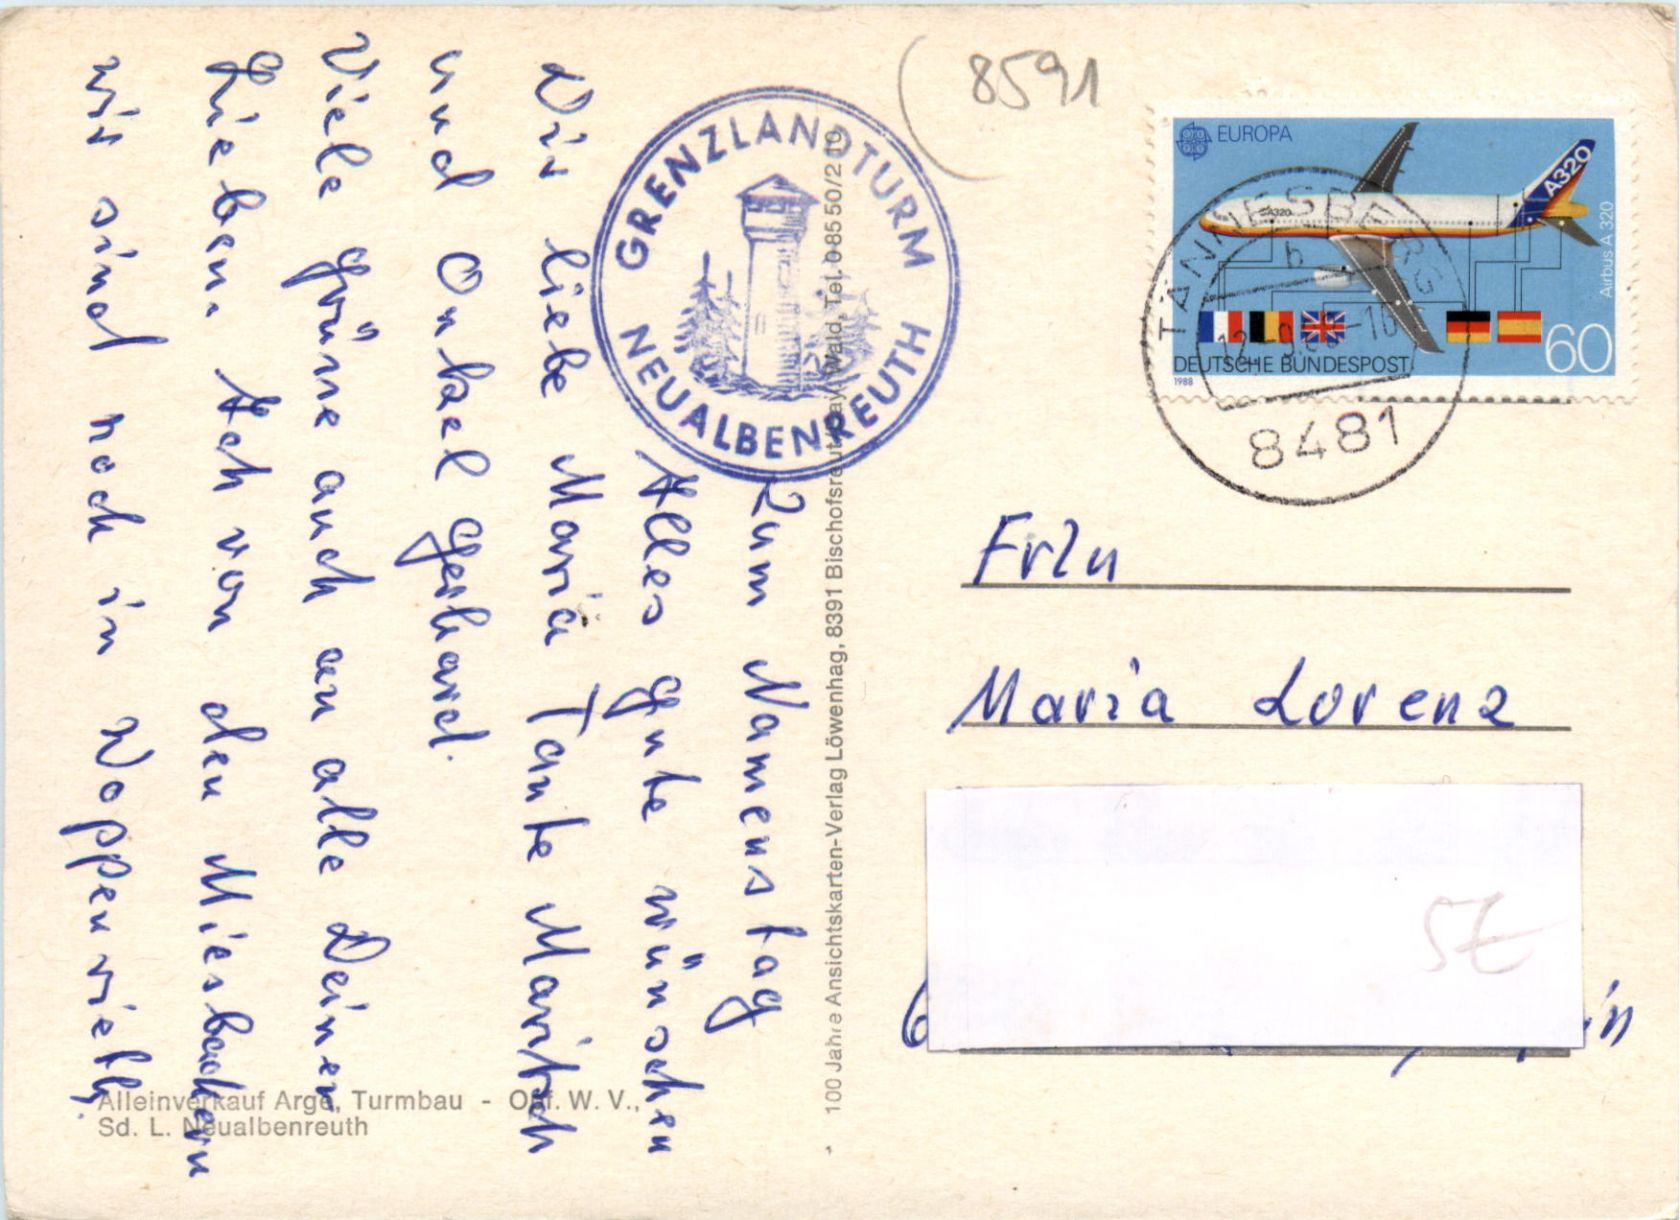 Zum Namenstag
Alles gute wünschen
Dir liebe Maria Tante Maritsch
und Onkel Gerhard.
Viele Grüße auch an alle Deinen
Lieben. Ach von den Miesbachern
wir sind noch in Woppenrieth.
GRENZLANDTURM
NEUALBENREUTH
100 Jahre Ansichtskarten-Verlag Löwenhag, 8391 Bischofsreut/Bay. Wald, Tel. 08550/210
Alleinverkauf Arge, Turmbau - O W. V.,
Sd. L. Neualbenreuth
8591
EUROPA
A320
A320
Airbus A 320
60
DEUTSCHE BUNDESPOST
1988
TÄNNESBERG
b
12.-9. -10
8481
Frln
Maria Lorenz
SZ
in